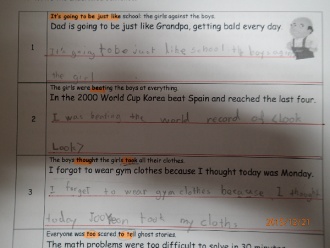 It's going to be just like school: the girls against the boys.
Dad is going to be just like Grandpa, getting bald every day.
1
It's going to be just like school the boys
the girl
The girls were beating the boys at everything.
In the 2000 World Cup Korea beat Spain and reached the last four.
2
I was beating the world record of
The boys thought the girls took all their clothes.
I forgot to wear gym clothes because I thought today was Monday.
3
I forgot to wear gym clothes because I thought
today took my clothes
Everyone was too scared to tell ghost stories.
The math problems were too difficult to solve in 30 minutes.